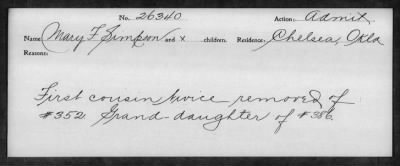 No. 26340 Action: Admit
Name Mary F Simpson and x children. Residence: Chelsea, Okla
Reasons:
First cousin twice removed of
#352. Grand-daughter of #386.